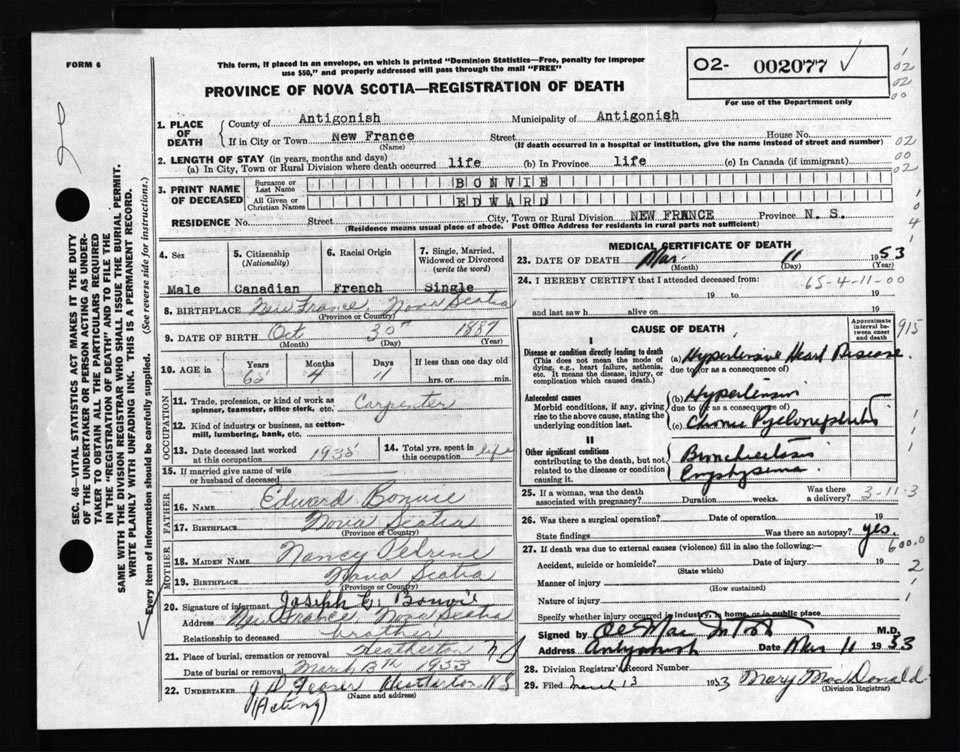 FORM 6
This form, if placed in an envelope, on which is printed "Dominion Statistics—Free, penalty for improper
use $50," and properly addressed will pass through the mail "FREE"
PROVINCE OF NOVA SCOTIA—REGISTRATION OF DEATH
O2- 002077
For use of the Department only
02
02
00
1. PLACE OF DEATH
County of Antigonish Municipality of Antigonish
If in City or Town New France Street House No.
(Name) (If death occurred in a hospital or institution, give the name instead of street and number)
02
00
02
2. LENGTH OF STAY (in years, months and days)
(a) In City, Town or Rural Division where death occurred life (b) In Province life (c) In Canada (if immigrant)
3. PRINT NAME OF DECEASED
Surname or Last Name BONVIE
All Given or Christian Names EDWARD
RESIDENCE No. Street City, Town or Rural Division NEW FRANCE Province N. S.
(Residence means usual place of abode. Post Office Address for residents in rural parts not sufficient)
4. Sex Male
5. Citizenship (Nationality) Canadian
6. Racial Origin French
7. Single, Married, Widowed or Divorced (write the word) Single
8. BIRTHPLACE New France, Nova Scotia
(Province or Country)
9. DATE OF BIRTH Oct 30th 1887
(Month) (Day) (Year)
10. AGE in Years 65 Months 4 Days 11 If less than one day old
hrs. or min.
OCCUPATION
11. Trade, profession, or kind of work as spinner, teamster, office clerk, etc. Carpenter
12. Kind of industry or business, as cotton-mill, lumbering, bank, etc.
13. Date deceased last worked at this occupation 1935
14. Total yrs. spent in this occupation life
15. If married give name of wife or husband of deceased
FATHER
16. NAME Edward Bonvie
17. BIRTHPLACE Nova Scotia
(Province or Country)
MOTHER
18. MAIDEN NAME Nancy Petrine
19. BIRTHPLACE Nova Scotia
(Province or Country)
20. Signature of informant Joseph C. Bonvie
Address New France Nova Scotia
Relationship to deceased brother
21. Place of burial, cremation or removal Heatherton N S
Date of burial or removal March 13th 1953
22. UNDERTAKER J D Fraser Heatherton N S
(Name and address)
(Acting)
MEDICAL CERTIFICATE OF DEATH
23. DATE OF DEATH Mar. 11 1953
(Month) (Day) (Year)
24. I HEREBY CERTIFY that I attended deceased from:
65-4-11-00
19 to 19
and last saw h alive on 19
CAUSE OF DEATH
Approximate interval between onset and death
915
I
Disease or condition directly leading to death
(This does not mean the mode of dying, e.g., heart failure, asthenia, etc. It means the disease, injury, or complication which caused death.)
(a) Hypertensive Heart Disease.
due to (or as a consequence of)
Antecedent causes
Morbid conditions, if any, giving rise to the above cause, stating the underlying condition last.
(b) Hypertension
due to (or as a consequence of)
(c) Chronic Pyelonephritis
II
Other significant conditions
contributing to the death, but not related to the disease or condition causing it.
Bronchiectasis
Emphysema
25. If a woman, was the death associated with pregnancy? Duration weeks. Was there a delivery?
3-11-3
26. Was there a surgical operation? Date of operation 19
State findings Was there an autopsy? yes.
600.0
27. If death was due to external causes (violence) fill in also the following:—
Accident, suicide or homicide? Date of injury 19
(State which)
2
Manner of injury
(How sustained)
Nature of injury
Specify whether injury occurred in industry, in home, or in public place
Signed by M.D.
Address Antigonish Date Mar 11 1953
28. Division Registrar's Record Number
29. Filed March 13 1953 Mary MacDonald
(Division Registrar)
SEC. 46—VITAL STATISTICS ACT MAKES IT THE DUTY
OF THE UNDERTAKER OR PERSON ACTING AS UNDER-
TAKER TO OBTAIN ALL THE PARTICULARS REQUIRED
IN THE "REGISTRATION OF DEATH" AND TO FILE THE
SAME WITH THE DIVISION REGISTRAR WHO SHALL ISSUE THE BURIAL PERMIT.
WRITE PLAINLY WITH UNFADING INK. THIS IS A PERMANENT RECORD.
Every item of information should be carefully supplied. (See reverse side for instructions.)